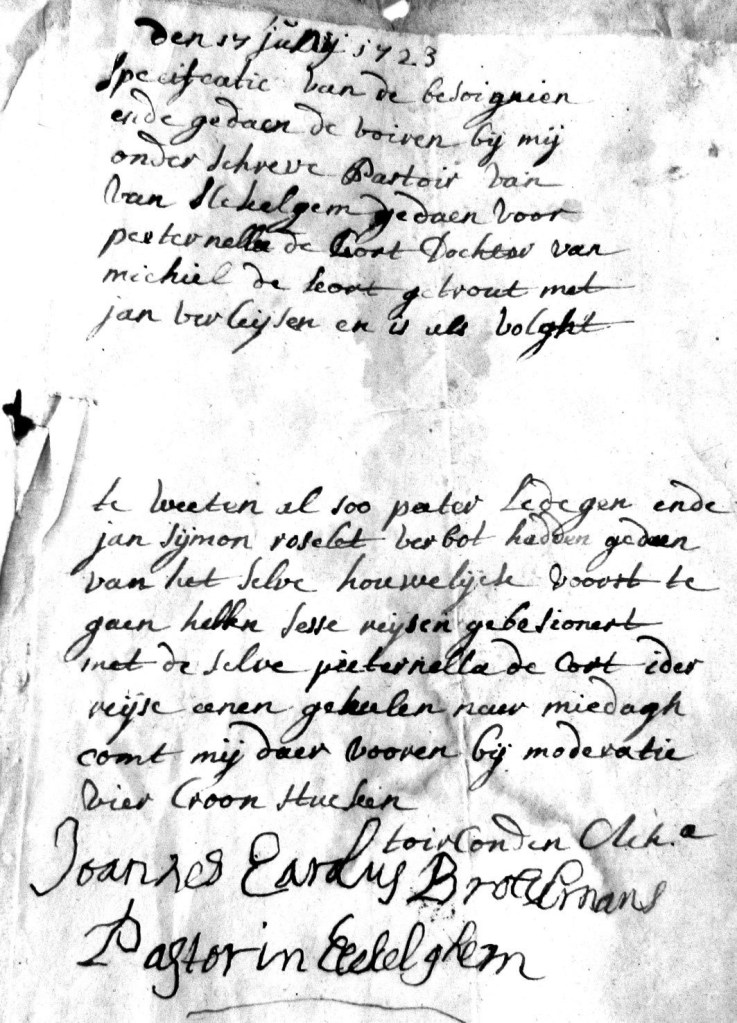 den 17 junij 1723
specificatie van de besoignien
ende gedaen de voiren bij mij
onder schreve Pastoir van
van Sekelgem gedaen voor
peeternella de Cort Dochter van
michiel de Cort getrout met
jan verleijsen en is als volght
te weeten al soo peeter Ledegen ende
jan sijmon roselet verbot hadden gedaen
van het selve houwelijck voort te
gaen hebben sesse reijsen gebesionert
met de selve pieternella de Cort ider
reijse eenen geheelen naer miedagh
comt mij daer vooren bij moderatie
vier Croon stucken
toirconden
Joannes Carolus Brockmans
Pastor in Ekelghem